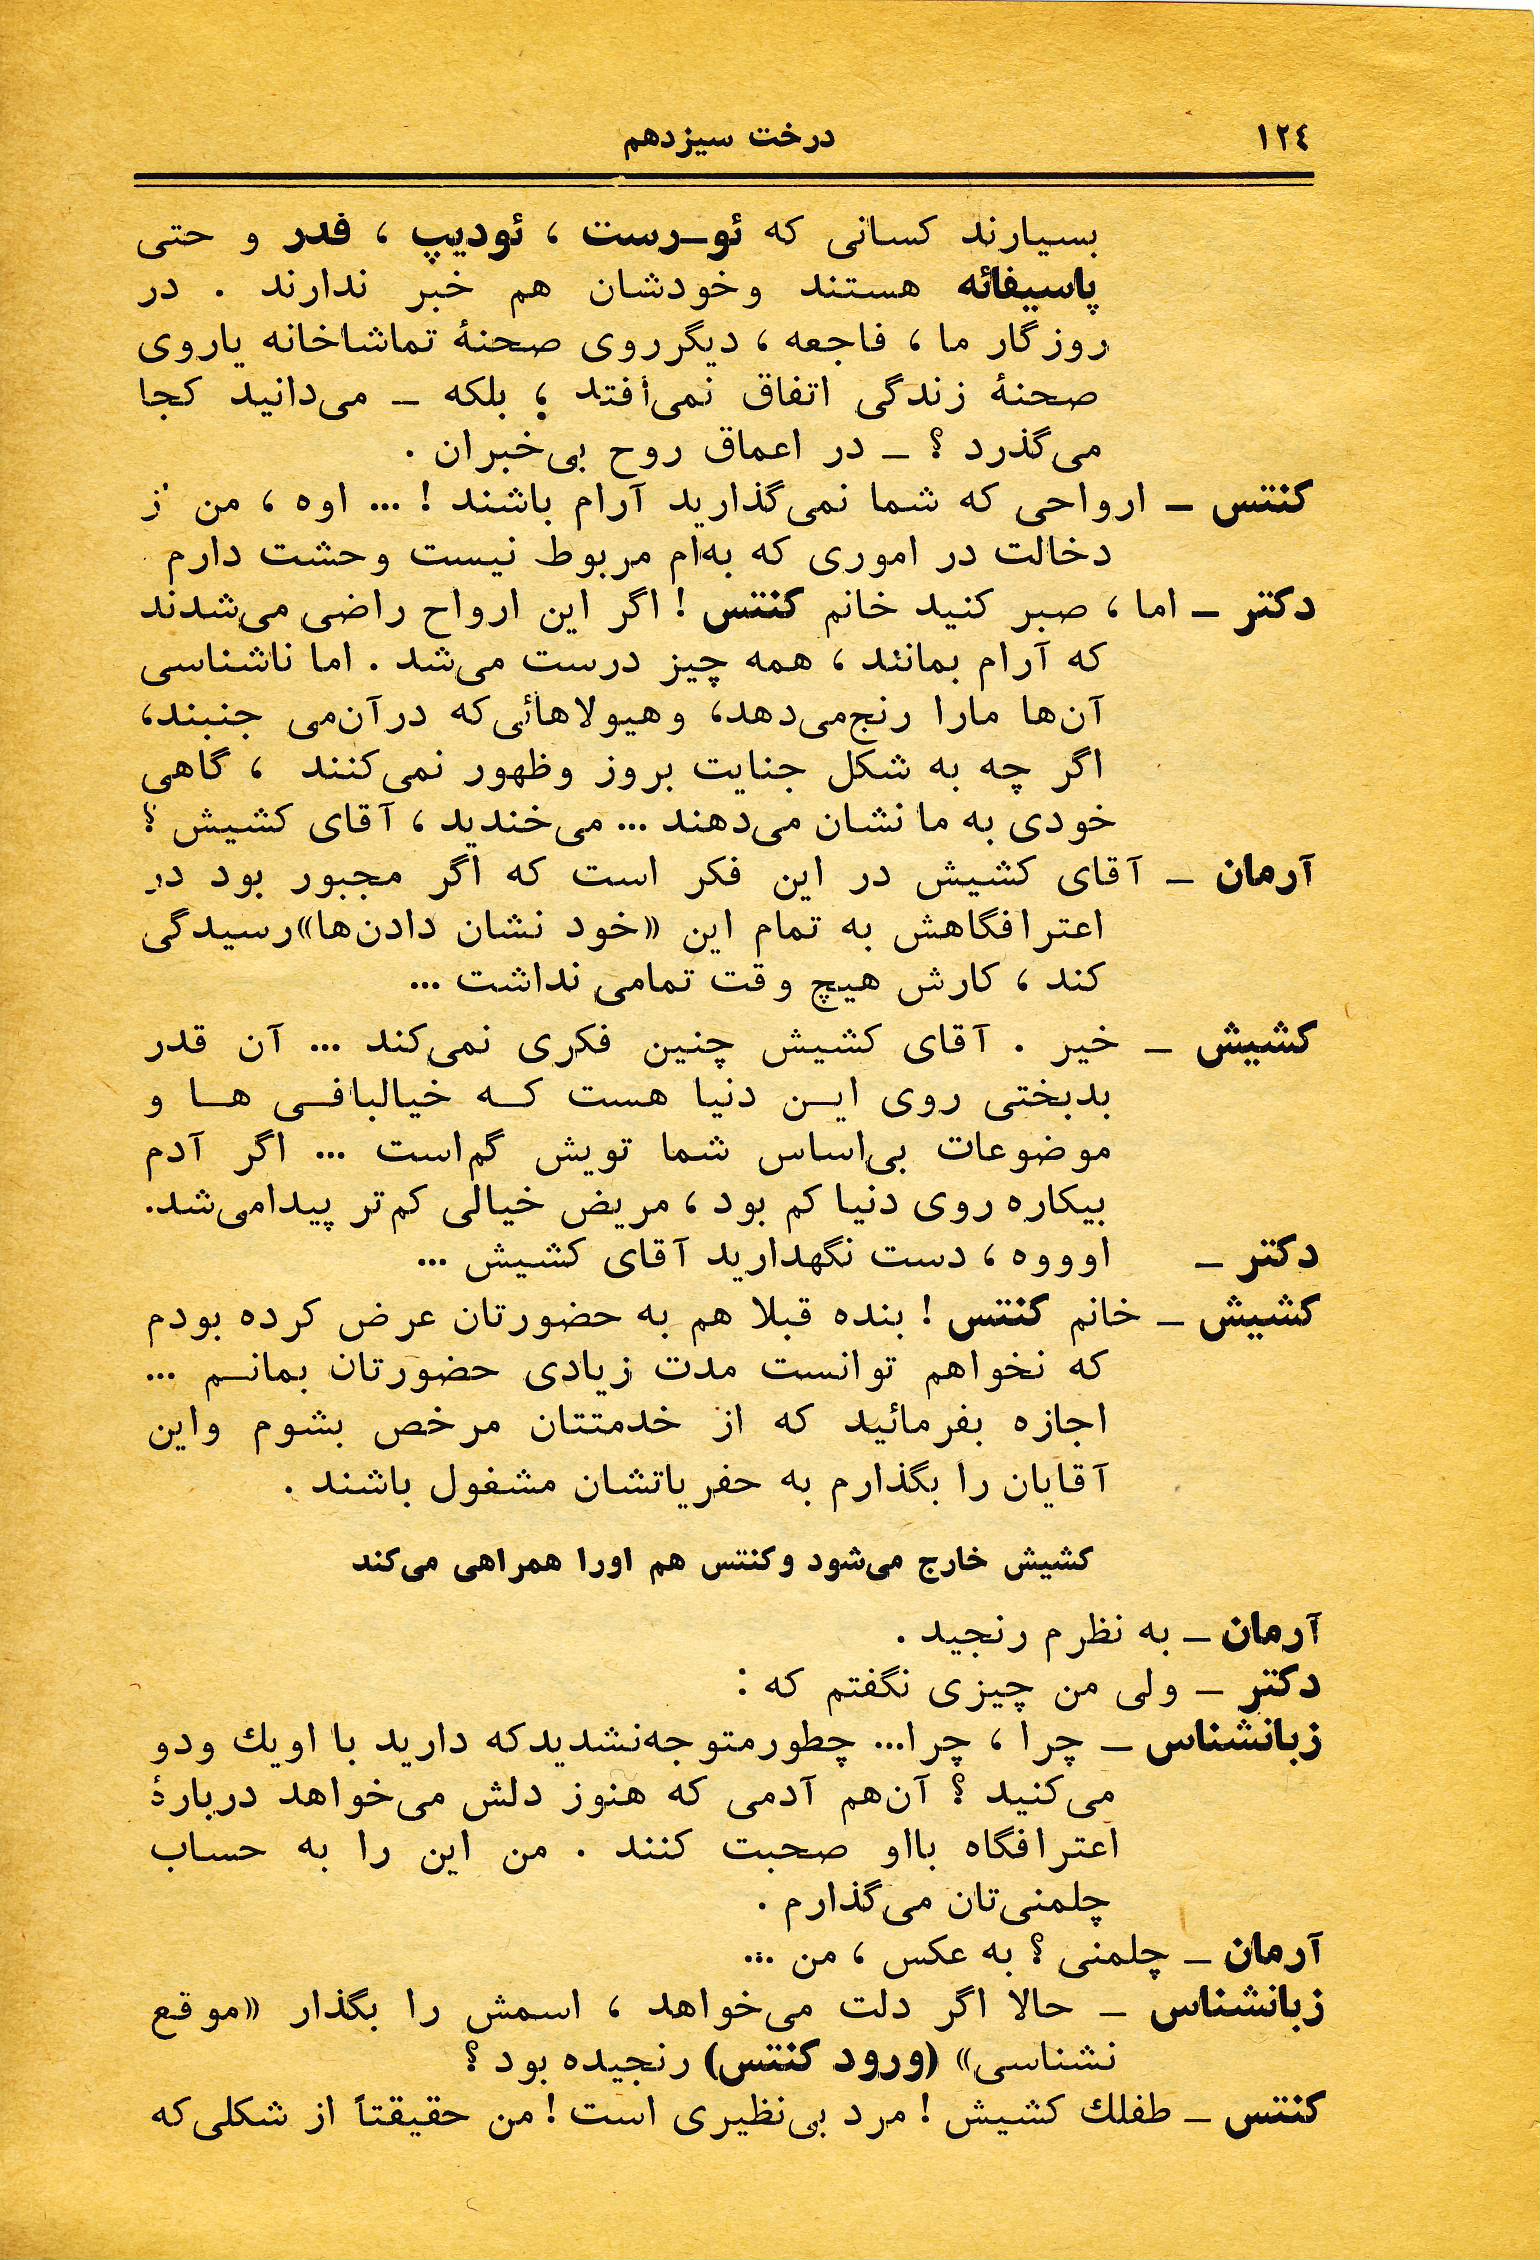 ١٢٤
درخت سیزدهم
بسیارند کسانی که ئو‌ـ‌رست ، ئودیپ ، فدر و حتی
پاسیفائه هستند وخودشان هم خبر ندارند . در
روزگار ما ، فاجعه ، دیگرروی صحنهٔ تماشاخانه یاروی
صحنهٔ زندگی اتفاق نمی‌اُفتد ؛ بلکه ــ می‌دانید کجا
می‌گذرد ؟ ــ در اعماق روح بی‌خبران .
کنتس ــ ارواحی که شما نمی‌گذارید آرام باشند ! ... اوه ، من از
دخالت در اموری که به‌ام مربوط نیست وحشت دارم .
دکتر ــ اما ، صبر کنید خانم کنتس ! اگر این ارواح راضی می‌شدند
که آرام بمانند ، همه چیز درست می‌شد . اما ناشناسی
آن‌ها مارا رنج‌می‌دهد، وهیولاهائی‌که درآن‌می جنبند،
اگر چه به شکل جنایت بروز وظهور نمی‌کنند ، گاهی
خودی به ما نشان می‌دهند ... می‌خندید ، آقای کشیش ؟
آرمان ــ آقای کشیش در این فکر است که اگر مجبور بود در
اعترافگاهش به تمام این «خود نشان دادن‌ها»رسیدگی
کند ، کارش هیچ وقت تمامی نداشت ...
کشیش ــ خیر . آقای کشیش چنین فکری نمی‌کند ... آن قدر
بدبختی روی ایـن دنیا هست کـه خیالبافـی هـا و
موضوعات بی‌اساس شما تویش گم‌است ... اگر آدم
بیکاره روی دنیا کم بود ، مریض خیالی کم‌تر پیدامی‌شد.
دکتر ــ اوووه ، دست نگهدارید آقای کشیش ...
کشیش ــ خانم کنتس ! بنده قبلا هم به حضورتان عرض کرده بودم
که نخواهم توانست مدت زیادی حضورتان بمانـم ...
اجازه بفرمائید که از خدمتتان مرخص بشوم واین
آقایان را بگذارم به حفریاتشان مشغول باشند .
کشیش خارج می‌شود وکنتس هم اورا همراهی می‌کند
آرمان ــ به نظرم رنجید .
دکتر ــ ولی من چیزی نگفتم که :
زبانشناس ــ چرا ، چرا... چطورمتوجه‌نشدیدکه دارید با اویك ودو
می‌کنید ؟ آن‌هم آدمی که هنوز دلش می‌خواهد دربارهٔ
اعترافگاه بااو صحبت کنند . من این را به حساب
چلمنی‌تان می‌گذارم .
آرمان ــ چلمنی ؟ به عکس ، من ...
زبانشناس ــ حالا اگر دلت می‌خواهد ، اسمش را بگذار «موقع
نشناسی» (ورود کنتس) رنجیده بود ؟
کنتس ــ طفلك کشیش ! مرد بی‌نظیری است ! من حقیقتاً از شکلی‌که